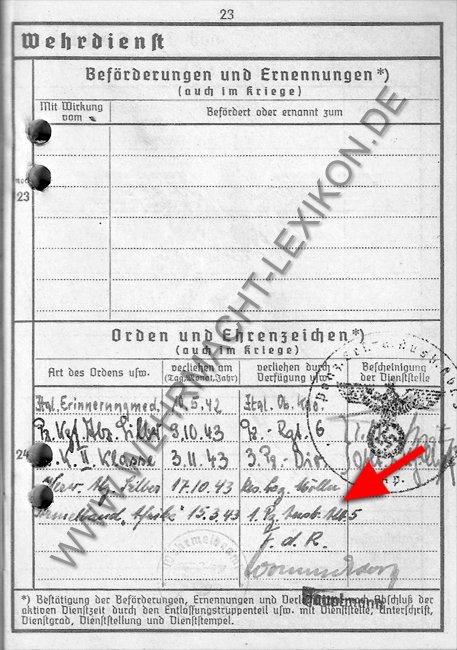 23
Wehrdienst
Beförderungen und Ernennungen*)
(auch im Kriege)
Mit Wirkung vom
Befördert oder ernannt zum
23
Orden und Ehrenzeichen*)
(auch im Kriege)
Art des Ordens usw.
verliehen am (Tag, Monat, Jahr)
verliehen durch Verfügung usw.
Bescheinigung der Dienststelle
Ital. Erinnerungmed. 5.42 Ital. Ob. Kdo.
Pz. Kpf. Abz. Silber 3.10.43 Pz.-Rgt. 6
24
K. II Klasse 3.11.43 3. Pz.-Div.
Verw. Abz. Silber 17.10.43 Res. Laz.
"Afrika" 15.3.43 1. Pz. Ausb. Abt. 5
F. d. R.
Hauptmann
*) Bestätigung der Beförderungen, Ernennungen und Verleihungen nach Abschluß der
aktiven Dienstzeit durch den Entlassungstruppenteil usw. mit Dienststelle, Unterschrift,
Dienstgrad, Dienststellung und Dienststempel.
WWW.WEHRMACHT-LEXIKON.DE